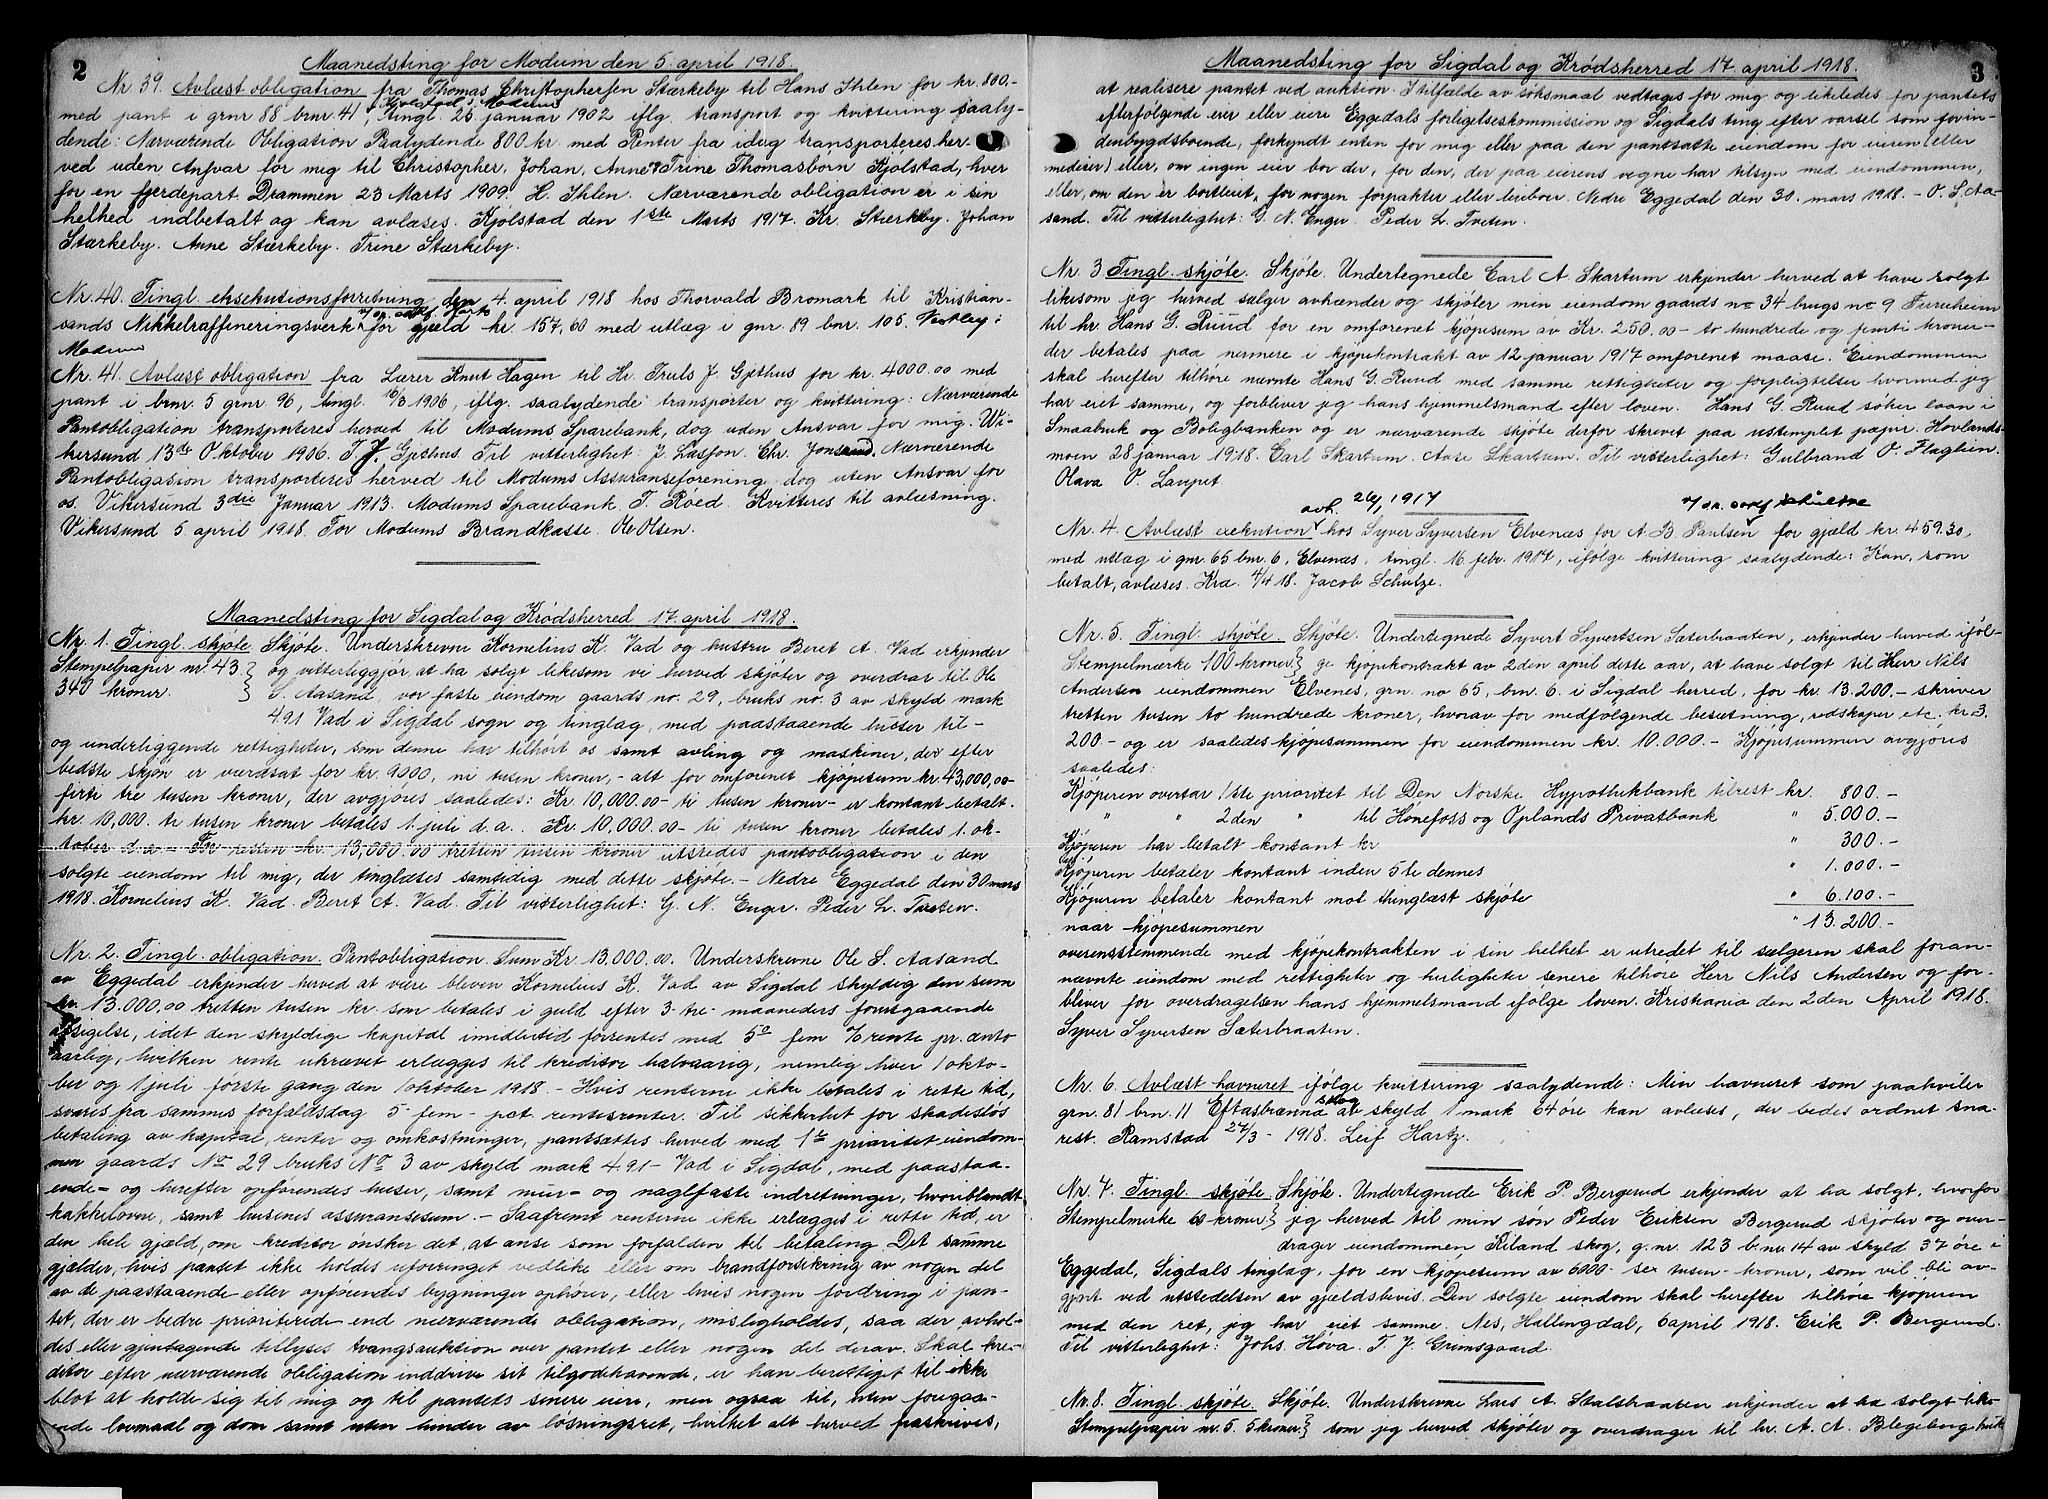 2
Maanedsting for Modum den 5. april 1918.
Nr. 39. Avlæst obligation fra Thomas Christophersen Stærkeby til Hans Ihlen for kr. 800.-
Kjolstad i Modum
med pant i grnr 88 brnr. 41, tingl. 25 januar 1902 iflg. transport og kvittering saaly-
dende: Nærværende Obligation Paalydende 800 kr. med Renter fra idag transporteres her-
ved uden Ansvar for mig til Christopher, Johan, Anne & Trine Thomasbørn Kjolstad, hver
for en fjerdepart. Drammen 23 Marts 1909. H. Ihlen. Nærværende obligation er i sin
helhed indbetalt og kan avlæses. Kjolstad den 1ste Marts 1917. Kr. Stærkeby. Johan
Stærkeby. Anne Stærkeby. Trine Stærkeby.
Nr. 40. Tingl. eksekutionsforretning den 4. april 1918 hos Thorvald Bromark til Kristian-
v/ o.r. sakf. Mark
sands Nikkelraffineringsverk for gjæld kr. 157,60 med utlæg i gnr. 89 bnr. 105. Vestby i
Modum
Nr. 41. Avlæst obligation fra Lærer Knut Hagen til Hr. Truls J. Gjethus for kr. 4000.00 med
pant i brnr. 5 grnr 96, tingl. 16/3 1906, iflg. saalydende transporter og kvittering: Nærværende
Pantobligation transporteres herved til Modums Sparebank, dog uden Ansvar for mig. Vi-
kersund 13de Oktober 1906. T. J. Gjethus Til vitterlighet: J. Lasson. Chr. Jonsrud. Nærværende
Pantobligation transporteres herved til Modums Assuranseforening dog uten Ansvar for
os. Vikersund 3die Januar 1913. Modums Sparebank. T. Røed. Kvitteres til avlæsning.
Vikersund 5 april 1918. For Modums Brandkasse. Ole Olsen.
Maanedsting for Sigdal og Krødsherred 17. april 1918.
Nr. 1. Tingl. skjøte. Skjøte. Underskrevne Kornelius K. Vad og hustru Beret A. Vad erkjender
Stempelpapir nr. 43 } og vitterliggjør at ha solgt likesom vi herved skjøter og overdrar til Ole
340 kroner. } S. Aasand, vor faste eiendom gaards no. 29, bruks no. 3 av skyld mark
4.91 Vad i Sigdal sogn og tinglag, med paastaaende huser til-
og underliggende rettigheter, som denne har tilhørt os samt avling og maskiner, der efter
bedste skjøn er værdsat for kr. 9000, ni tusen kroner,- alt for omforenet kjøpesum kr. 43,000,00-
firti tre tusen kroner, der avgjøres saaledes: Kr. 10,000.00- ti tusen kroner- er kontant betalt.
kr. 10,000. ti tusen kroner betales 1. juli d.a. Kr. 10,000.00- ti tusen kroner betales 1. ok-
tober d.a - For resten kr. 13,000.00 tretten tusen kroner utstedes pantobligation i den
solgte eiendom til mig, der tinglæses samtidig med dette skjøte. - Nedre Eggedal den 30 mars
1918. Kornelius K. Vad. Beret A. Vad. Til vitterlighet: G. N. Enger. Peder L. Tveten.
Nr. 2. Tingl. obligation. Pantobligation. Sum Kr. 13.000.00. Underskrevne Ole S. Aasand
av Eggedal erkjender herved at være bleven Kornelius K. Vad av Sigdal skyldig den sum
kr. 13.000,00 tretten tusen kr. som betales i guld efter 3- tre- maaneders forutgaaende
opsigelse, idet den skyldige kapital imidlertid forrentes med 5% fem % rente pr. anto
aarlig, hvilken rente ukrævet erlægges til kreditor halvaarig, nemlig hver 1 okto-
ber og 1 juli første gang den 1 oktober 1918 - Hvis renterne ikke betales i rette tid,
svares fra sammes forfaldsdag 5- fem - pct. rentesrenter. Til sikkerhet for skadesløs
betaling av kapital, renter og omkostninger, pantsættes herved med 1ste prioritet eiendom-
men gaards No 29 bruks No 3 av skyld mark 4.91- Vad i Sigdal, med paastaa-
ende- og herefter opførendes huser, samt mur- og naglfaste indretninger, hvoriblandt
kakkelovne, samt husenes assuransesum. - Saafremt renterne ikke erlægges i rette tid, er
den hele gjæld, om kreditor ønsker det, at anse som forfalden til betaling Det samme
gjælder, hvis pantet ikke holdes uforringet vedlike eller om brandforsikring av nogen del
av de paastaaende eller opførendes bygninger ophører, eller hvis nogen fordring i pan-
tet, der er bedre prioriterede end nærværende obligation, misligholdes, saa der avhol-
des eller gjentagende tillyses tvangsauktion over pantet eller nogen del derav. Skal kre-
ditor efter nærværende obligation inddrive sit tilgodehavende, er han berettiget til ikke
blot at holde sig til mig og til pantets senere eiere, men ogsaa til, uten foregaa-
ende lovmaal og dom samt uten hinder av løsningsret, hvilket alt herved fraskrives,
3
Maanedsting for Sigdal og Krødsherred 17 april 1918.
at realisere pantet ved auktion. I tilfælde av søksmaal vedtages for mig og likeledes for pantets
efterfølgende eier eller eiere Eggedals forligelseskommission og Sigdals ting efter varsel som for in-
denbygdsboende, forkyndt enten for mig eller paa den pantsatte eiendom for eieren (eller
medeier) eller, om ingen eier bor der, for den, der paa eierens vegne har tilsyn med eiendommen,
eller, om den er bortleiet, for nogen forpakter eller leiboer. Nedre Eggedal den 30. mars 1918. - O. S. Aa-
sand. Til vitterlighet: G. N. Enger. Peder L. Tveten.
Nr. 3 Tingl. skjøte. Skjøte. Undertegnede Carl A. Skartum erkjender herved at have solgt
likesom jeg herved sælger avhænder og skjøter min eiendom gaards no 34 brugs no 9 Furuheim
til hr. Hans G. Ruud for en omforenet kjøpesum av Kr. 250.00 - to hundrede og femti kroner-
der betales paa nermere i kjøpekontrakt av 12 januar 1917 omforenet maate. Eiendommen
skal herefter tilhøre nævnte Hans G. Ruud med samme rettigheter og forpligtelser hvormed jeg
har eiet samme, og forbliver jeg hans hjemmelsmand efter loven. Hans G. Ruud søker laan i
Smaabruk og Boligbanken og er nærværende skjøte derfor skrevet paa ustemplet papir. Hovlands-
moen 28 januar 1918. Carl Skartum. Aase Skartum. Til vitterlighet: Gulbrand O. Flaglien.
Olava O.
avh. 26/1 1917
v/ o.r. sakf Schultze
Nr. 4. Avlæst exekution hos Syver Syversen Elvenæs for A. B. Paulsen for gjæld kr. 459.30,
med utlæg i gnr. 65 bnr. 6, Elvenæs, tingl. 16 febr. 1917, ifølge kvittering saalydende: Kan, som
betalt, avlæses. Kra. 4/4 18. Jacob Schulze.
Nr. 5. Tingl. skjøte. Skjøte. Undertegnede Syvert Syvertsen Sæterbraaten, erkjender herved iføl-
Stempelmærke 100 kroner. } ge kjøpekontrakt av 2den april dette aar, at have solgt til Herr Nils
Andersen eiendommen Elvenes, grn. no 65, brn. 6. i Sigdal herred, for kr. 13.200.- skriver
tretten tusen to hundrede kroner, hvorav for medfølgende besætning, redskaper etc. kr. 3.
200.- og er saaledes kjøpesummen for eiendommen kr. 10.000.- Kjøpesummen avgjøres
saaledes:
Kjøperen overtar 1ste prioritet til Den Norske Hypothekbank tilrest kr. 800.-
" " 2den " til Hønefoss og Oplands Privatbank " 5.000.-
Kjøperen har betalt kontant kr " 300.-
Kjøperen betaler kontant inden 5te dennes " 1.000.-
Kjøperen betaler kontant mot thinglæst skjøte " 6.100.-
naar kjøpesummen " 13.200.-
overensstemmende med kjøpekontrakten i sin helhet er utredet til sælgeren skal foran-
nævnte eiendom med rettigheter og herligheter senere tilhøre Herr Nils Andersen og for-
bliver for overdragelsen hans hjemmelsmand ifølge loven. Kristiania den 2den April 1918.
Syver Syversen Sæterbraaten.
Nr. 6. Avlæst havneret ifølge kvittering saalydende: Min havneret som paahviler
skog
grn. 81 brn. 11 Eftasbrænna av skyld 1 mark 64 øre kan avlæses, der bedes ordnet sna-
rest. Ramstad 27/3 - 1918. Leif Hartz.
Nr. 7. Tingl. skjøte. Skjøte. Undertegnede Erik P. Bergerud erkjender at ha solgt, hvorfor
Stempelmerke 60 kroner } jeg herved til min søn Peder Eriksen Bergerud skjøter og over-
drager eiendommen Kiland skog, g.nr. 123 b.nr. 14 av skyld 37 øre i
Eggedal, Sigdals tinglag, for en kjøpesum av 6000- sex tusen- kroner, som vil bli av-
gjort ved utstedelsen av gjældsbevis. Den solgte eiendom skal herefter tilhøre kjøperen
med den ret, jeg har eiet samme. Nes, Hallingdal, 6 april 1918. Erik P. Bergerud.
Til vitterlighet: Johs. Hova. T. J. Grimsgaard.
Nr. 8. Tingl. skjøte. Skjøte. Underskrevne Lars A. Skalstraaten erkjender at ha solgt like-
Stempelpapir nr. 5. 5 kroner. } som jeg herved skjøter og overdrager til hr. A. A. Blegeberg